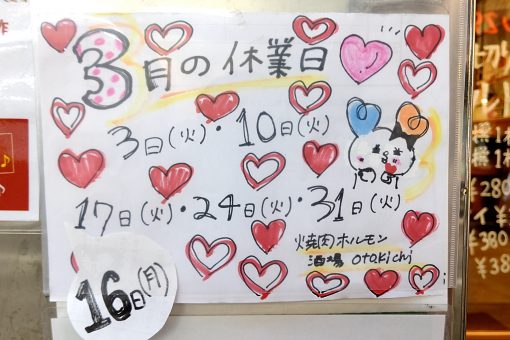 3月の休業日
3日(火)・10日(火)
17日(火)・24日(火)・31日(火)
16日(月)
焼肉ホルモン
酒場 otakichi
280
¥
¥380
¥38